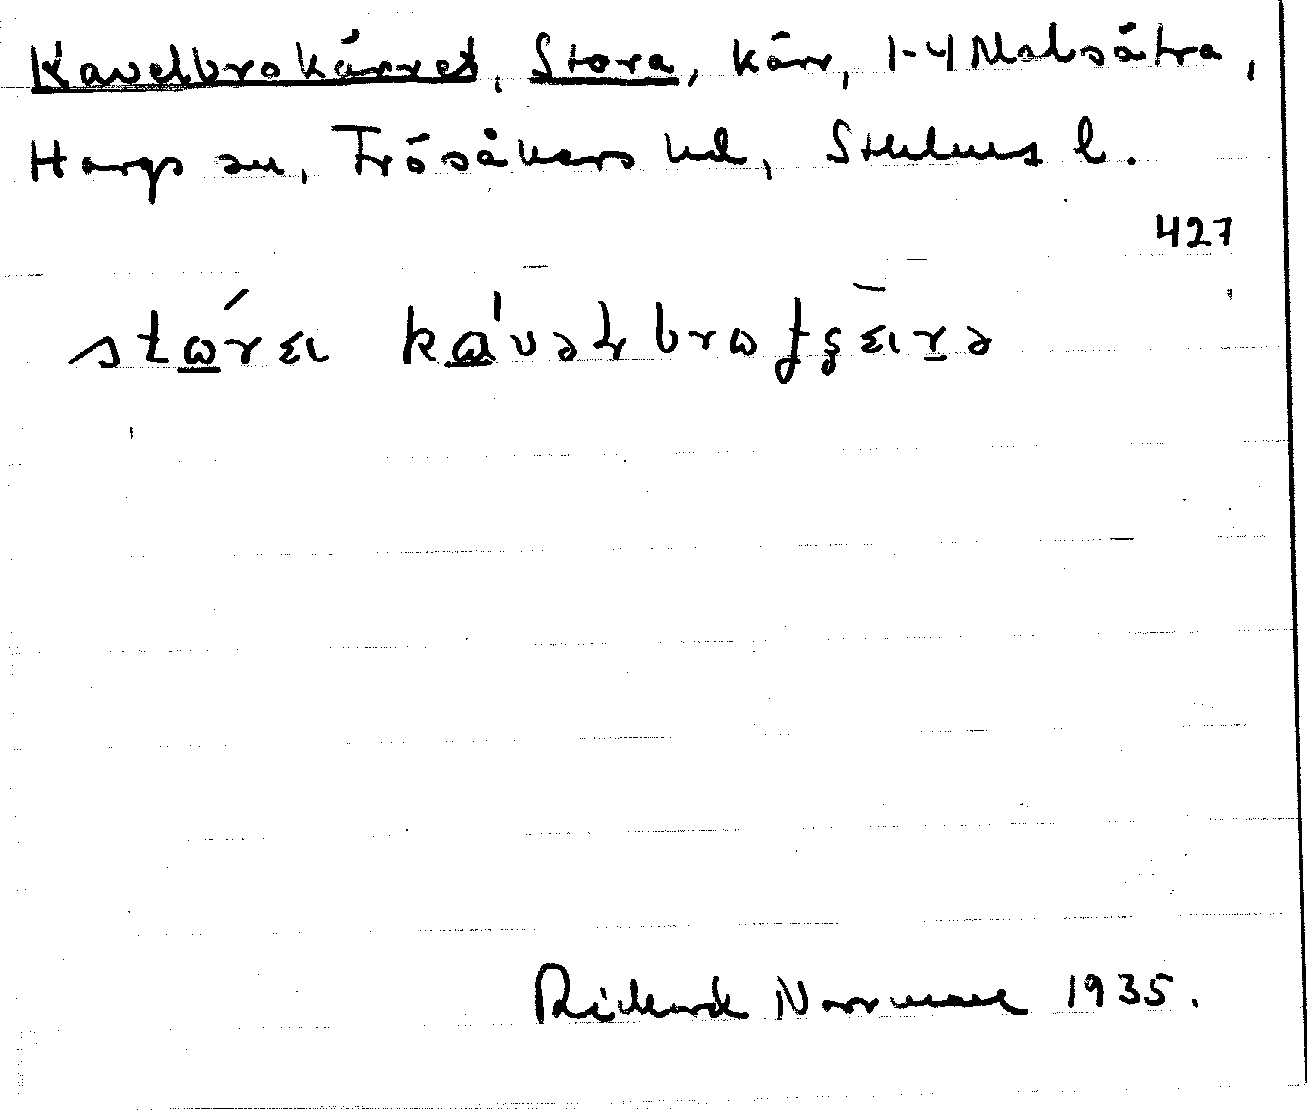 Kavelbrokärret, Stora, kärr, 1-4 Malsätra,
Hargs sn, Frösåkers hd, Sthlms l.
427
Rickard Norrman 1935.